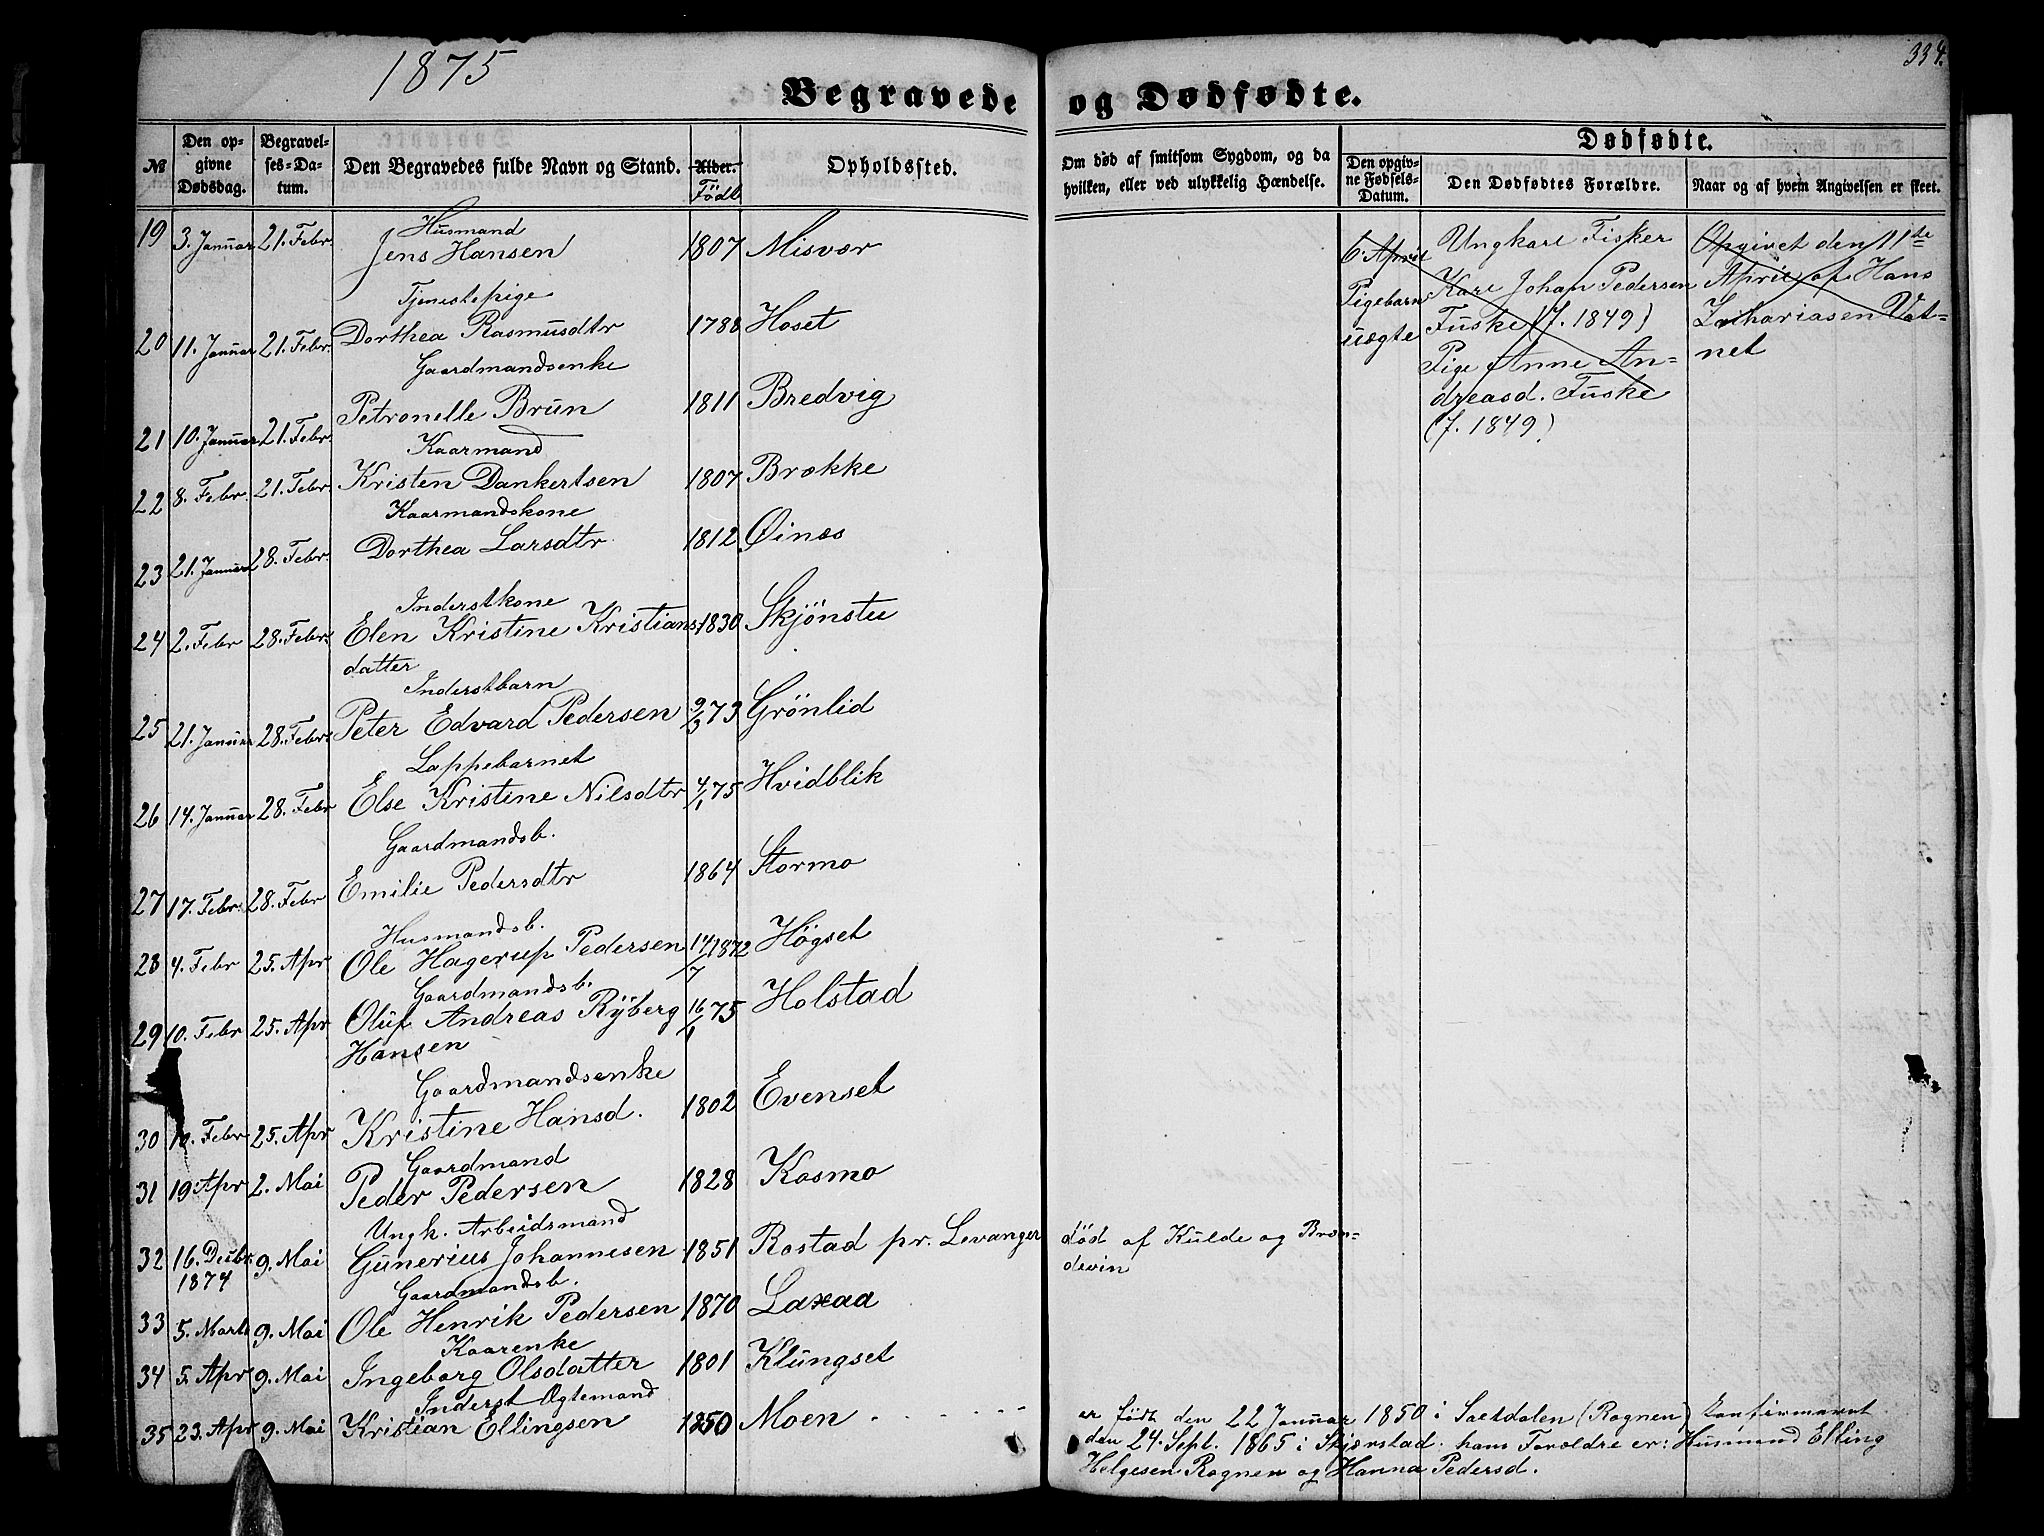 1875
334.
Begravede og Dødfødte.
№
Den opgivne Dødsdag.
Begravelses-Datum.
Den Begravedes fulde Navn og Stand.
Alder. Födt
Opholdssted.
Om død af smitsom Sygdom, og da hvilken, eller ved ulykkelig Hændelse.
Dødfødte.
Den opgivne Fødsels-Datum.
Den Dødfødtes Forældre.
Naar og af hvem Angivelsen er skeet.
Husmand
19 3. Januar 21. Febr. Jens Hansen 1807 Misvær
Tjenestepige
20 11. Januar 21. Febr. Dorthea Rasmusdtr 1788 Hoset
Gaardmandsenke
21 10. Januar 21. Febr. Petronelle Brun 1811 Bredvig
Kaarmand
22 8. Febr. 21. Febr. Kristen Dankertsen 1807 Brække
Kaarmandskone
23 21. Januar 28. Febr. Dorthea Larsdtr 1812 Øinæs
Inderstkone
24 2. Febr 28. Febr. Elen Kristine Kristians 1830 Skjönstu
datter
Inderstbarn
25 21. Januar 28. Febr. Peter Edvard Pedersen 9/3 73 Grönlid
Lappebarnet
26 14. Januar 28. Febr Else Kristine Nilsdtr 4/1 75 Hvidblik
Gaardmandsb.
27 17. Febr. 28. Febr Emilie Pedersdtr 1864 Stormo
Husmandsb.
28 4. Febr 25. Apr Ole Hagerup Pedersen 14/7 1872 Högset
Gaardmandsb.
29 10. Febr 25. Apr Oluf Andreas Ryberg 16/1 75 Holstad
Hansen
Gaardmandsenke
30 10. Febr 25. Apr Kristine Hansd. 1802 Evenset
Gaardmand
31 19. Apr 2. Mai Peder Pedersen 1828 Kosmo
Ungk. Arbeidsmand
32 16. Decbr. 9. Mai Gunerius Johannesen 1851 Rostad pr. Levanger død af Kulde og Bræn-
1874 devin
Gaardmandsb.
33 5. Marts 9. Mai Ole Henrik Pedersen 1870 Laxaa
Kaarenke
34 5. Apr 9. Mai Ingeborg Olsdatter 1801 Klungset
Inderst Ægtemand
35 23. Apr 9. Mai Kristian Ellingsen 1850 Moen
er født den 22 Januar 1850 i Saltdalen (Rognen) konfirmeret
den 24. Sept. 1865 i Skjærstad. hans Forældre er: Husmand Elling
Helgesen Rognen og Hanna Pedersd.
6. April
Pigebarn
uægte
Ungkarl Fisker
Karl Johan Pedersen
Fuske (f. 1849)
Pige Anne An-
dreasd. Fuske
(f. 1849)
Opgivet den 11te
April af Hans
Zachariasen Vat-
net